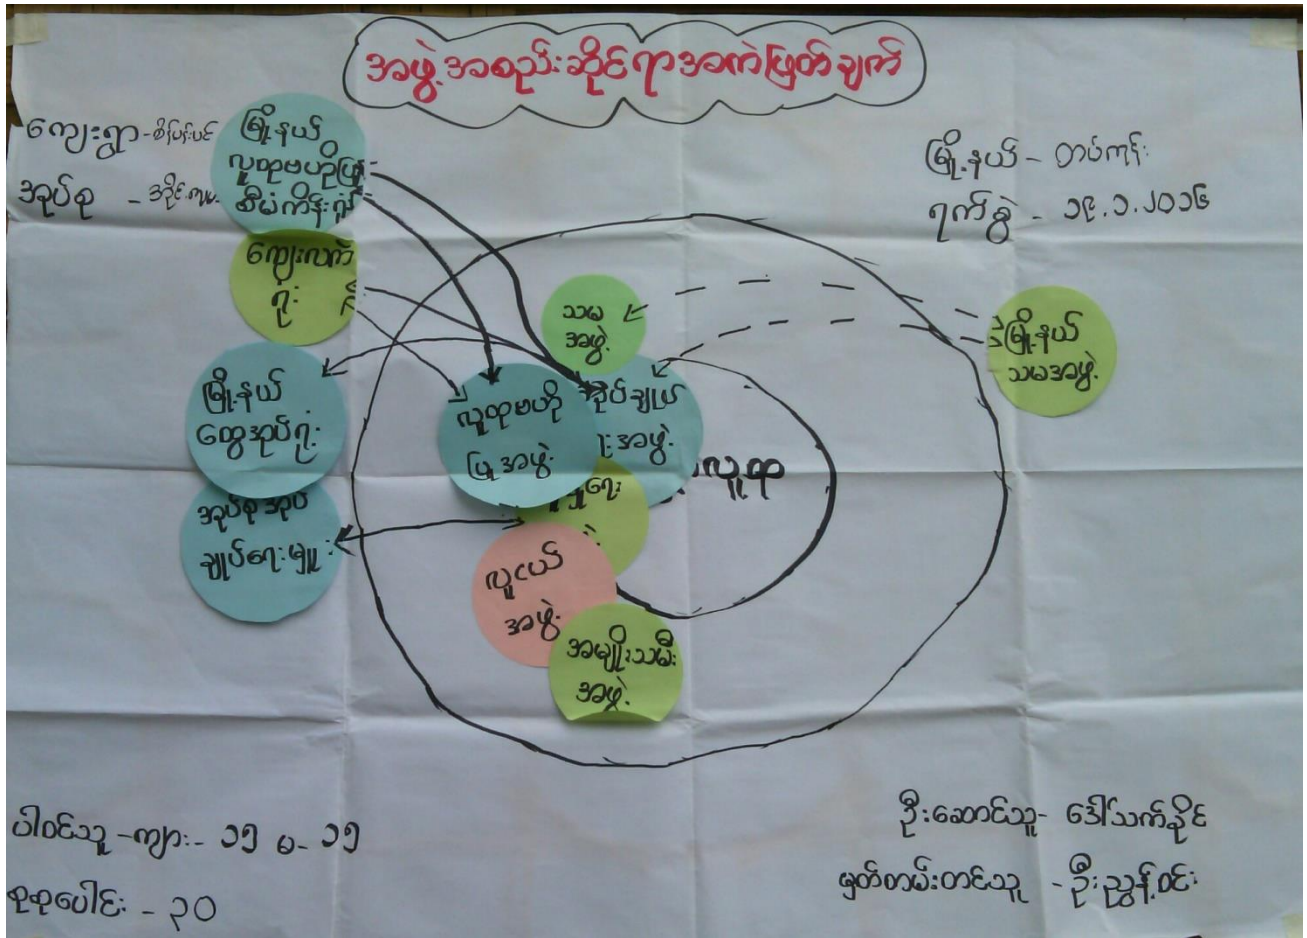 အဖွဲ့အစည်းဆိုင်ရာအကဲဖြတ်ချက်
ကျေးရွာ - စိမ်ပန်းပင်
အုပ်စု -
မြို့နယ် - တပ်ကုန်း
ရက်စွဲ - ၁၉.၁.၂၀၁၆
မြို့နယ်
လူထုဗဟိုပြု
စီမံကိန်းရုံး
ကျေးလက်
ရုံး
မြို့နယ်
ထွေအုပ်ရုံး
အုပ်စုအုပ်
ချုပ်ရေးမှူး
သမ
အဖွဲ့
လူထုဗဟို
ပြုအဖွဲ့
အုပ်ချုပ်
ရေးအဖွဲ့
လူထု
လူငယ်
အဖွဲ့
အမျိုးသမီး
အဖွဲ့
မြို့နယ်
သမအဖွဲ့
ပါဝင်သူ - ကျား - ၁၅ မ - ၁၅
စုစုပေါင်း - ၃၀
ဦးဆောင်သူ - ဒေါ်သက်နိုင်
မှတ်တမ်းတင်သူ - ဦးညွန့်ဝင်း